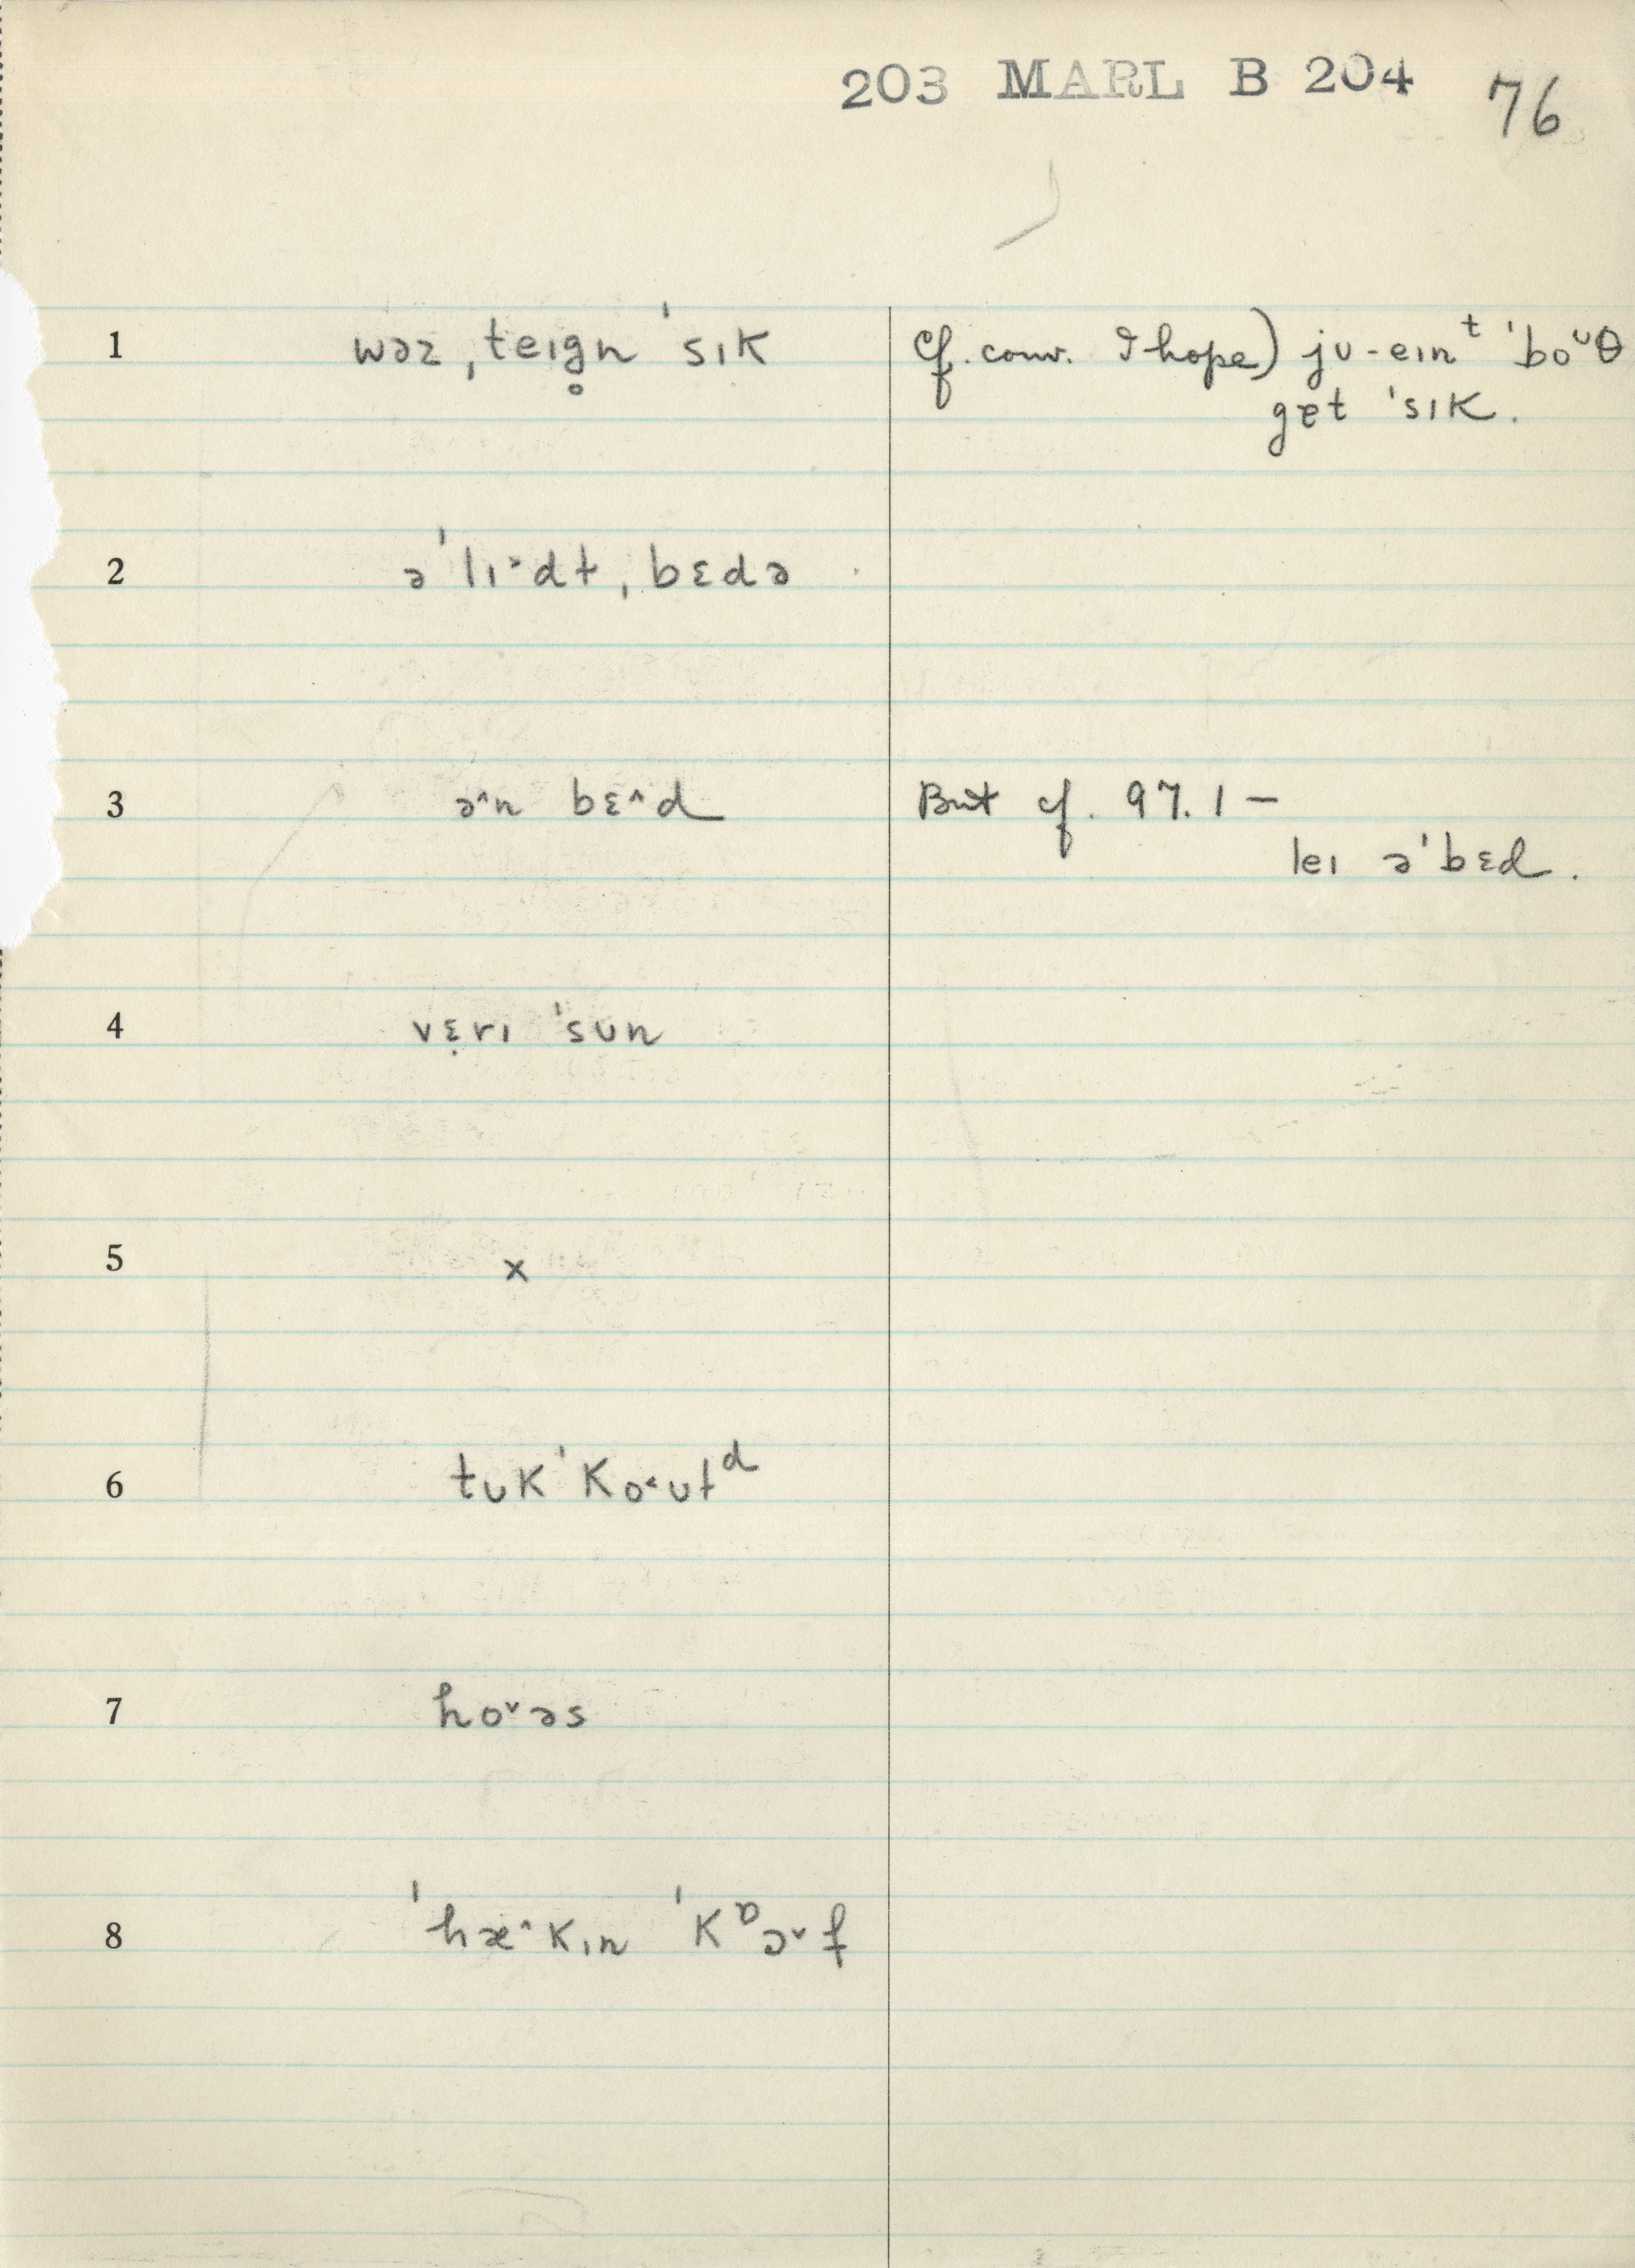 203 MARL B 204 76
1 wəz ˌteɪg̥n ˈsɪk cf. conv. I hope) jʊ-eɪnᵗ ˈboᶷθ
get ˈsɪk.
2 əˈlɪ˃dt ˌbɛdə
3 ə˄n bɛ˄d But cf. 97.1 –
leɪ əˈbɛd.
4 vɛ̣rɪ ˈsun
5 x
6 tʊk ˈko˂ʊtᵈ
7 ho˅əs
8 ˈhæ˄kɪn ˈkᶛɔ˅f